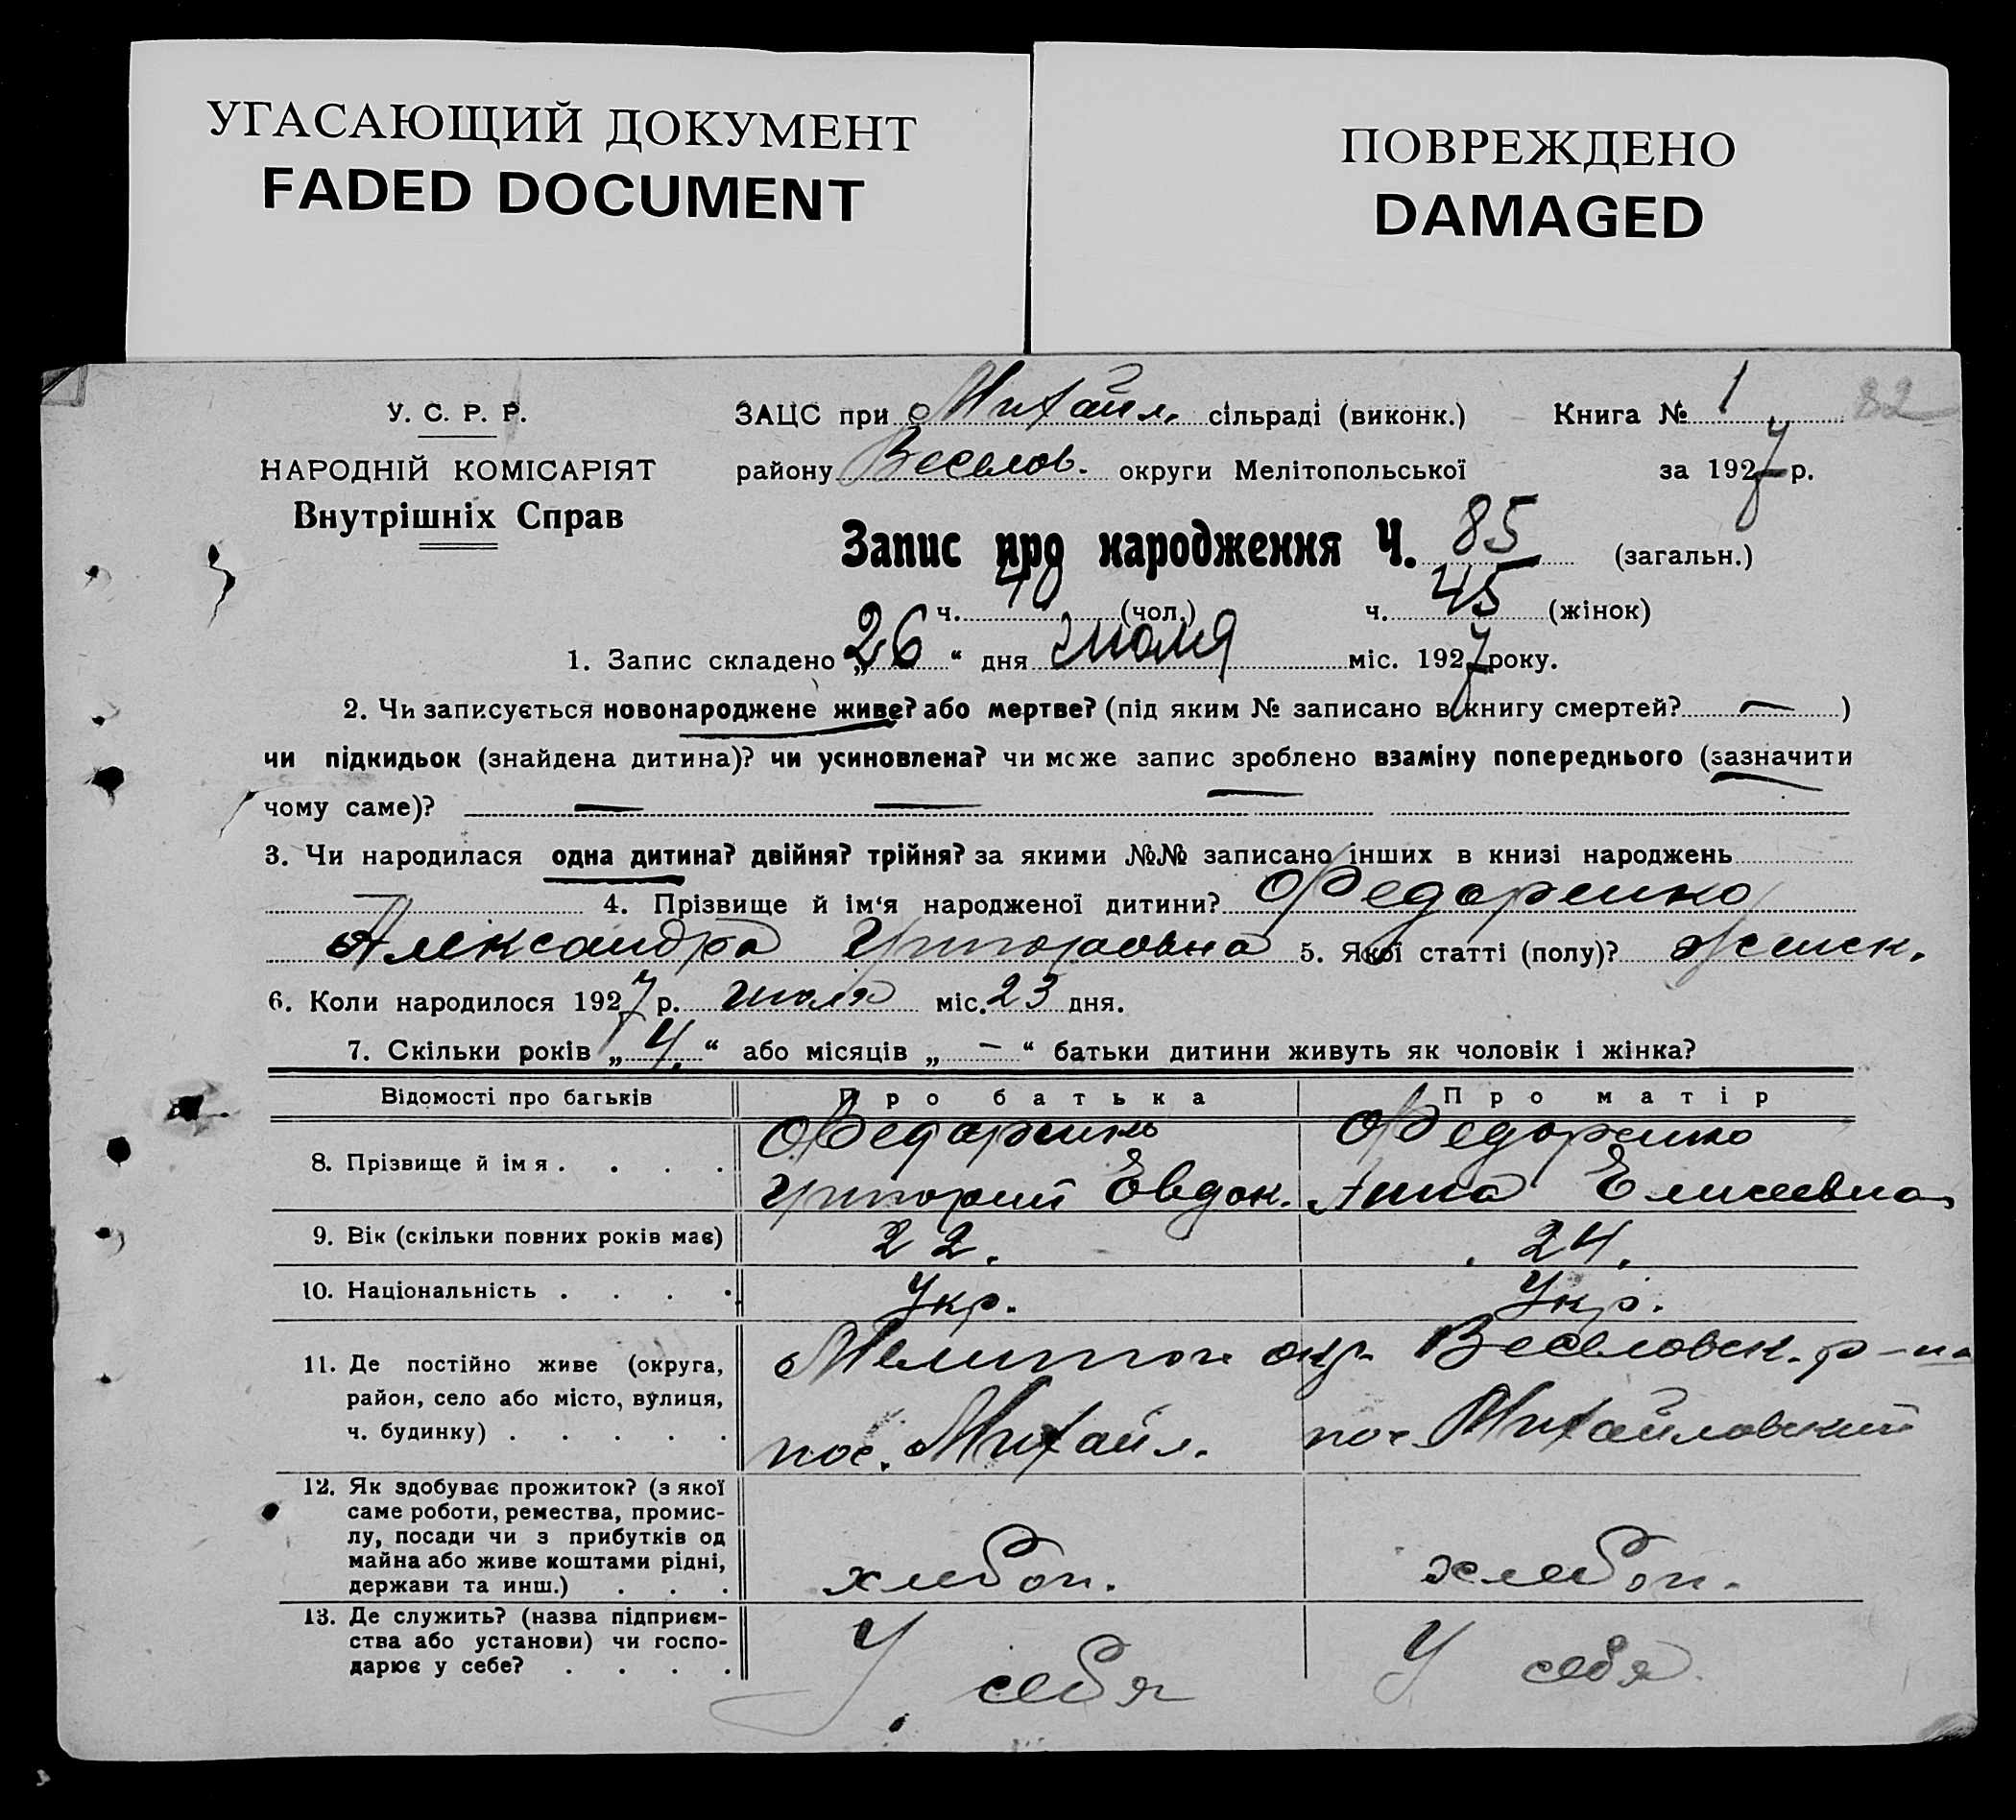 УГАСАЮЩИЙ ДОКУМЕНТ
FADED DOCUMENT
ПОВРЕЖДЕНО
DAMAGED
82
У. С. Р. Р.
НАРОДНІЙ КОМІСАРІЯТ
Внутрішніх Справ
ЗАЦС при Михайл. сільраді (виконк.) Книга № 1
району Веселов. округи Мелітопольської за 1927 р.
Запис про народження Ч. 85 (загальн.)
ч. 40 (чол.) ч. 45 (жінок)
1. Запис складено „26“ дня июля міс. 1927 року.
2. Чи записується новонароджене живе? або мертве? (під яким № записано в книгу смертей? — )
чи підкидьок (знайдена дитина)? чи усиновлена? чи може запис зроблено взаміну попереднього (зазначити
чому саме)? — — —
3. Чи народилася одна дитина? двійня? трійня? за якими №№ записано інших в книзі народжень
— 4. Прізвище й ім‘я народженої дитини? Федоренко
Александра Григоровна 5. Якої статті (полу)? женск.
6. Коли народилося 1927 р. июля міс. 23 дня.
7. Скільки років „4.“ або місяців „ — “ батьки дитини живуть як чоловік і жінка?
Відомості про батьків Про батька Про матір
8. Прізвище й імя . . . . Федоренко Григорий Евдок. Федоренко Анна Елисеевна
9. Вік (скільки повних років має) 22. 24.
10. Національність . . . . Укр. Укр.
11. Де постійно живе (округа,
район, село або місто, вулиця,
ч. будинку) . . . . .
Мелитоп окр. Веселовск. р-на
пос. Михайл. пос. Михайловский
12. Як здобуває прожиток? (з якої
саме роботи, ремества, промис-
лу, посади чи з прибутків од
майна або живе коштами рідні,
держави та инш.) . . .
хлебоп. хлебоп.
13. Де служить? (назва підприєм-
ства або установи) чи госпо-
дарює у себе? . . . .
У себя У себя